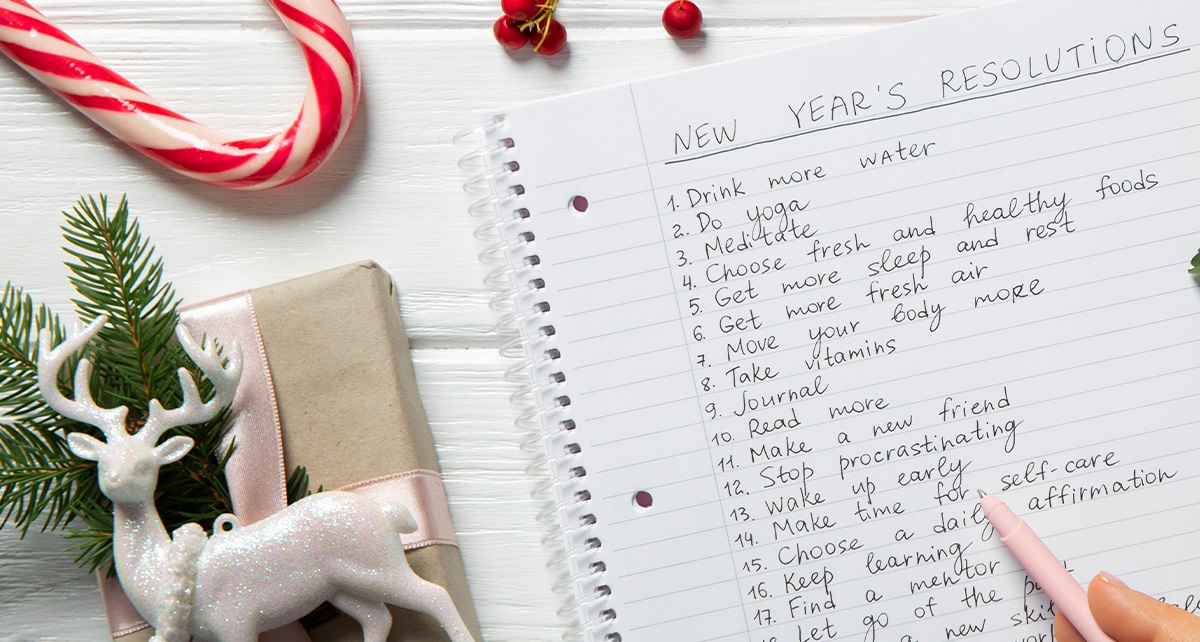 NEW YEAR'S RESOLUTIONS
1. Drink more water
2. Do yoga
3. Meditate
4. Choose fresh and healthy foods
5. Get more sleep and rest
6. Get more fresh air
7. Move your body more
8. Take vitamins
9. Journal
10. Read more
11. Make a new friend
12. Stop procrastinating
13. Wake up early
14. Make time for self-care
15. Choose a daily affirmation
16. Keep learning
17. Find a mentor
Let go of the
a new